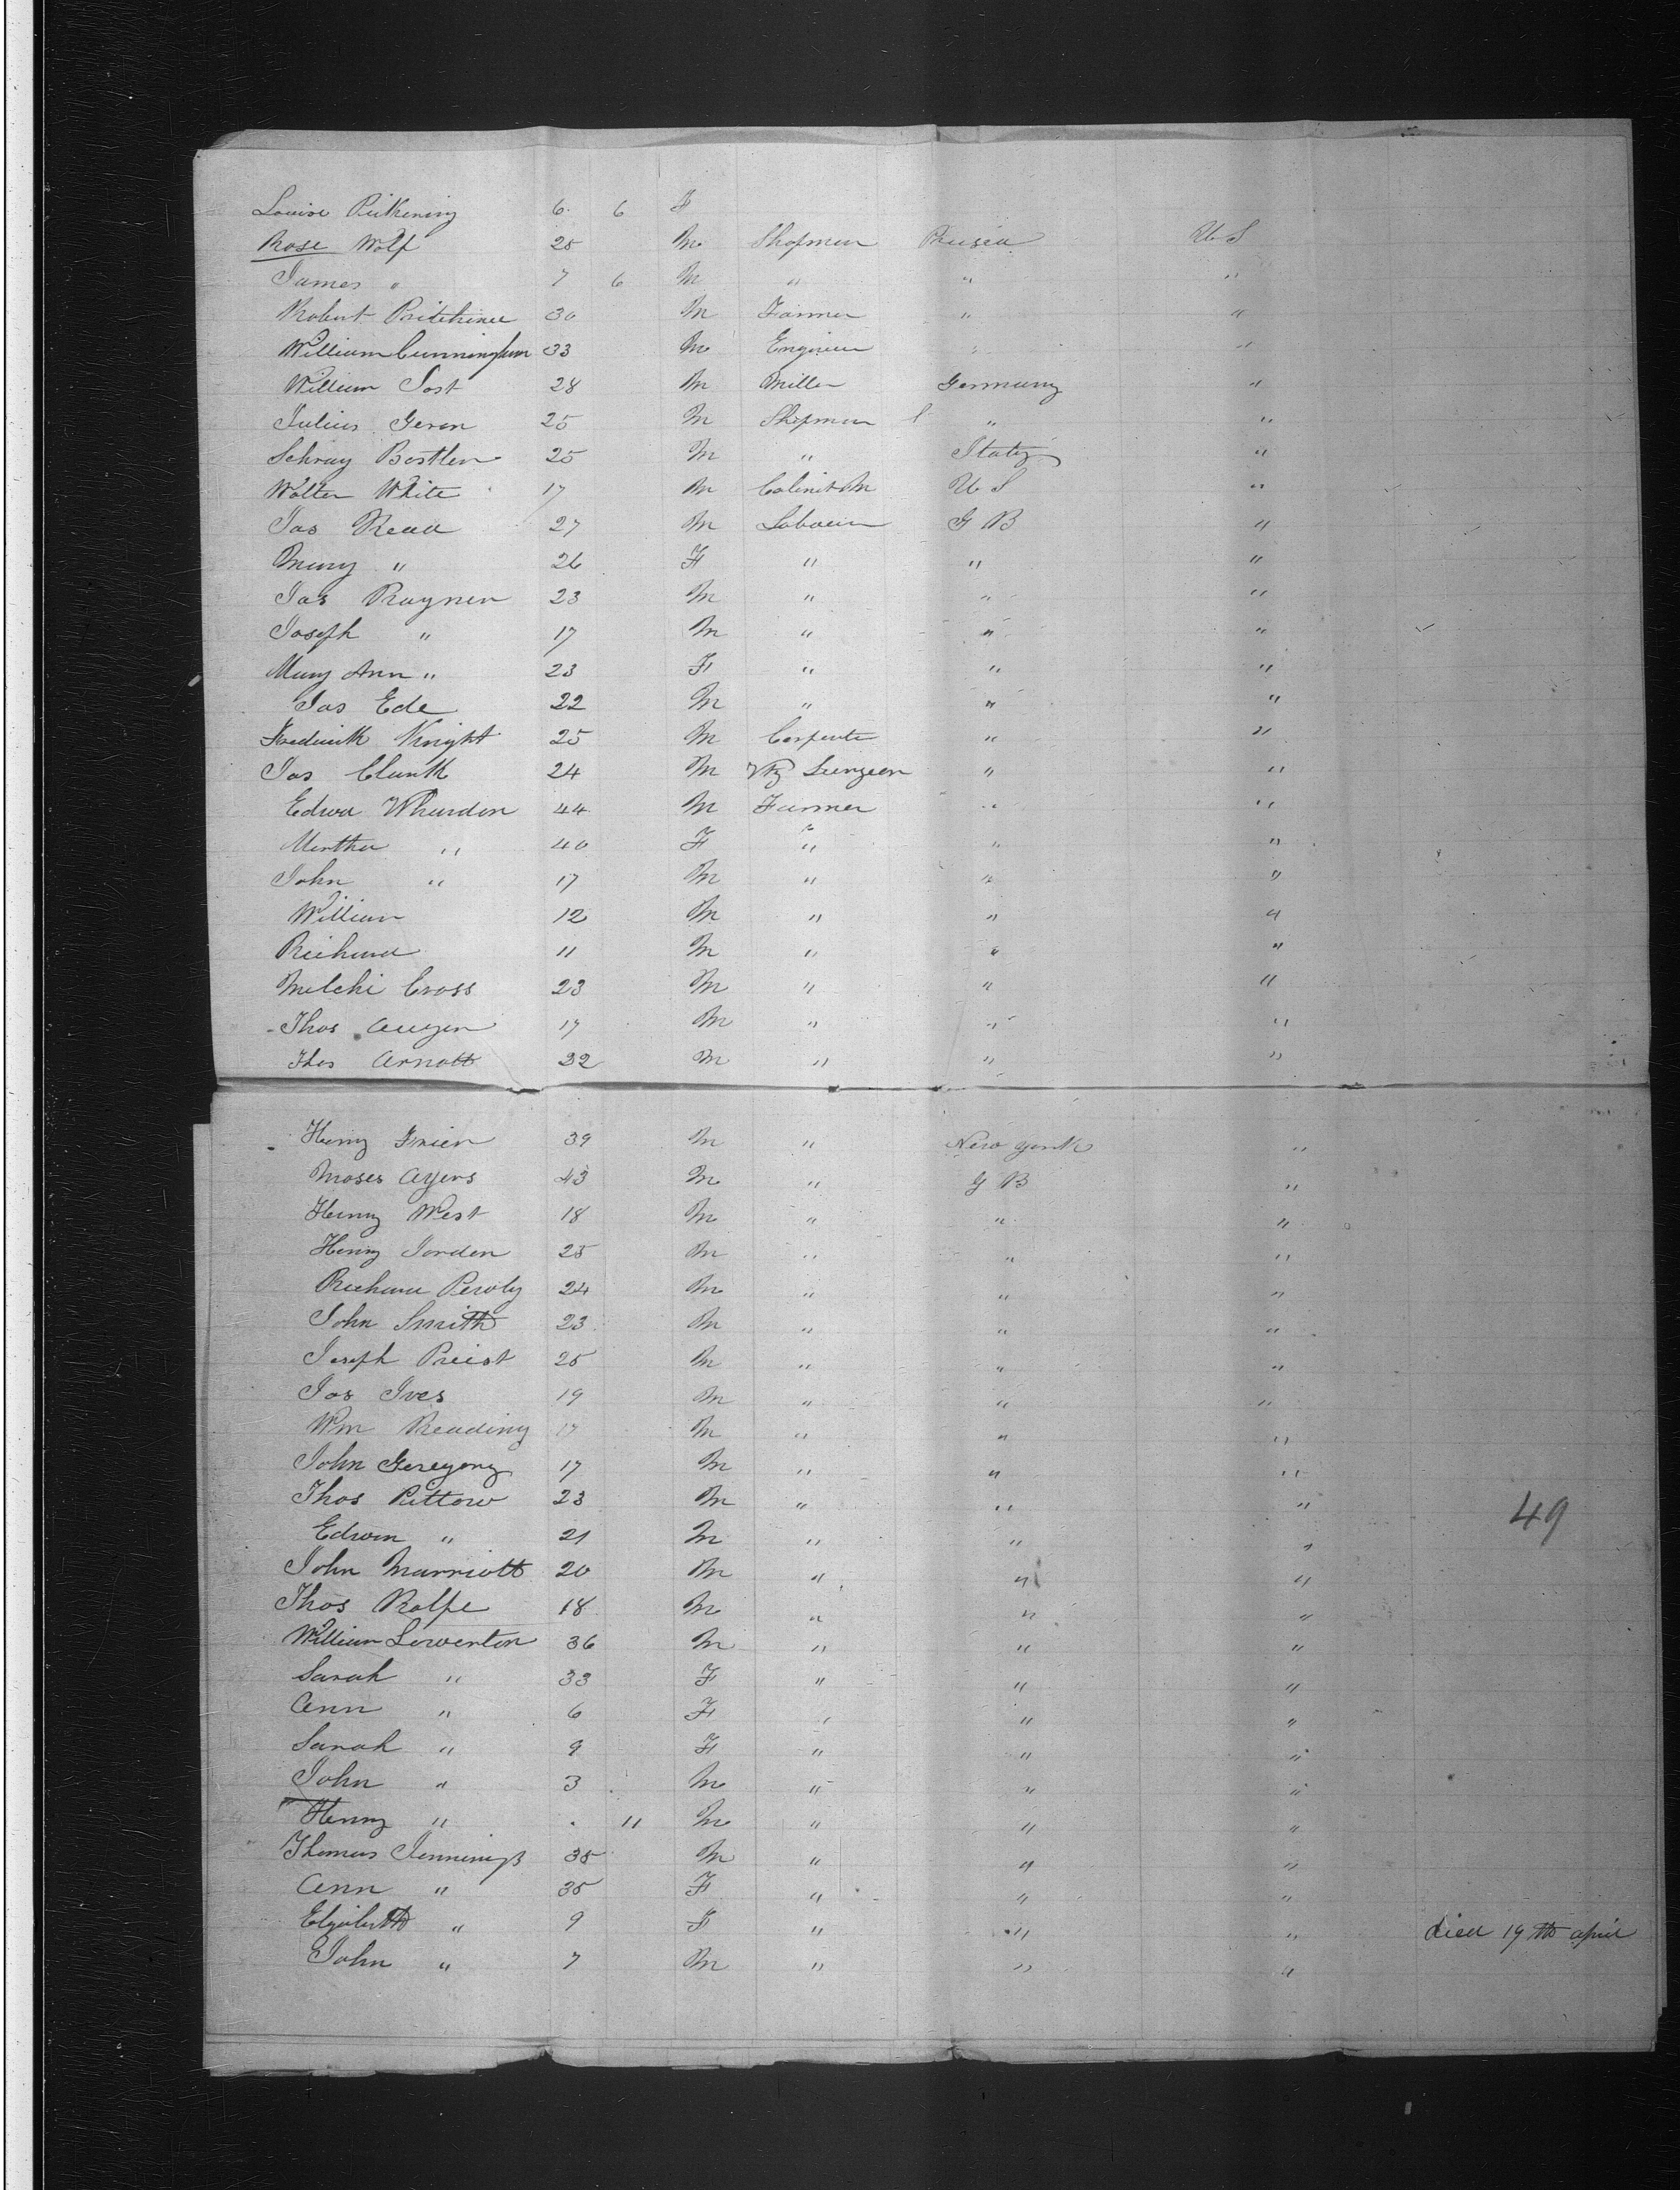 Louise Pickering 6 6 F
Rose Wolf 25 M Shopman Prusia U S
James " 7 6 M " " "
Robert 30 M Farmer " "
William Cunningham 33 M Engineer " "
William Jost 28 M Miller Germany "
Julius Geron 25 M Shopman " "
Schray Bostlen 25 M " Italy "
Walter White 17 M Cabinet M U S "
Jas Read 27 M Labourer G B "
Mary " 26 F " " "
Jas Rayner 23 M " " "
Joseph " 17 M " " "
Mary Ann " 23 F " " "
Jas Ede 22 M " " "
Frederick Knight 25 M Carpenter " "
Jas Clunk 24 M Surgeon " "
Edwd Whardon 44 M Farmer " "
Martha " 40 F " " "
John " 17 M " " "
William 12 M " " "
Richard 11 M " " "
Melchi Cross 23 M " " "
Thos Auger 17 M " " "
Thos Arnott 32 M " " "
Henry Frier 39 M " New York "
Moses Ayers 43 M " G B "
Henry West 18 M " " "
Henry Jorden 25 M " " "
Richard 24 M " " "
John Smith 23 M " " "
Joseph Preist 25 M " " "
Jas Ives 19 M " " "
Wm Reading 17 M " " "
John Geregory 17 M " " "
Thos Rittow 23 M " " " 49
Edwin " 21 M " " "
John Marriott 20 M " " "
Thos Rolfe 18 M " " "
William Lewerton 36 M " " "
Sarah " 33 F " " "
Ann " 6 F " " "
Sarah " 9 F " " "
John " 3 M " " "
Henry " . 11 M " " "
Thomas Jennings 35 M " " "
Ann " 35 F " " "
Elizabeth " 9 F " " " died 19th april
John " 7 M " " "